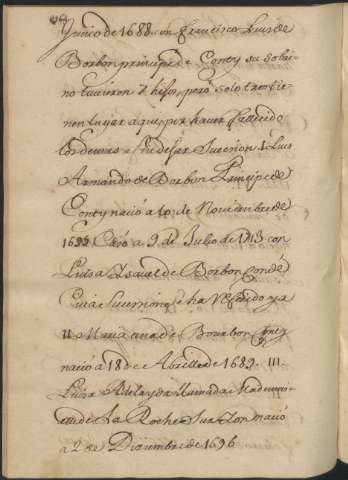 Junio de 1688 con Francisco Luis de
Borbon principe de Conty su sobri-
no tuvieron 7 hijos, pero solo tres tie-
nen lugar aqui por haver fallecido
los demas sin dejar sucesion I. Luis
Armando de Borbon Principe de
Conty nació a 10 de Noviembre de
1695 Casó a 9 de Julio de 1713 con
Luisa Isavel de Borbon Condé
Cuia Succesion se ha referido ya
II. Maria ana de Bourbon Conty
nació a 18 de Abril de 1689. III.
Luisa Adelayda llamada Madamoi-
de la Roche Sur Yon nació
a 2 de Diciembre de 1696